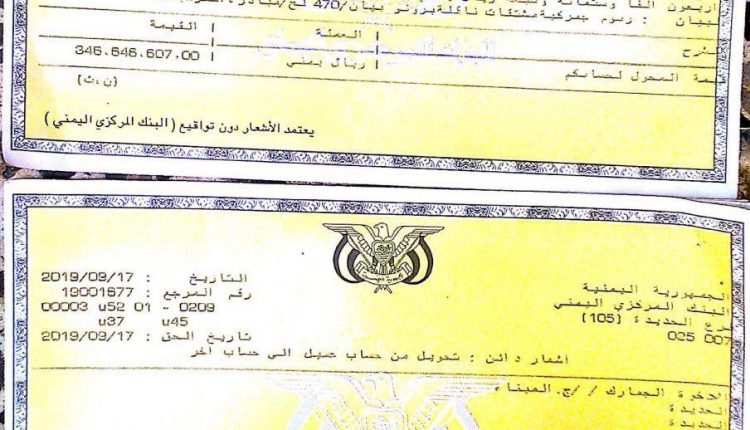 اربعون الفا وستمائة
بيان : رسوم جمركية مشتقات ناقلة برونو بيان/470
العملة القيمة
ريال يمني 346,646,607.00
المحول لحسابكم
(ن،ث)
يعتمد الأشعار دون تواقيع ( البنك المركزي اليمني )
الجمهورية اليمنية
البنك المركزي اليمني
فرع الحديدة (105)
025 007
التاريخ : 2019/09/17
رقم المرجع : 19001677
00003 u52 01 - 0209
u37 u45
تاريخ الحق : 2019/09/17
اشعار دائن : تحويل من حساب عميل الى حساب آخر
الاخوة الجمارك / /ج. الميناء
الحديدة
الحديدة